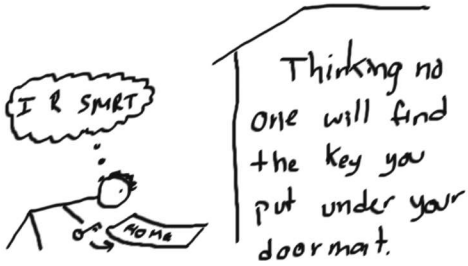 I R SMRT
HOME
Thinking no
one will find
the key you
put under your
doormat.